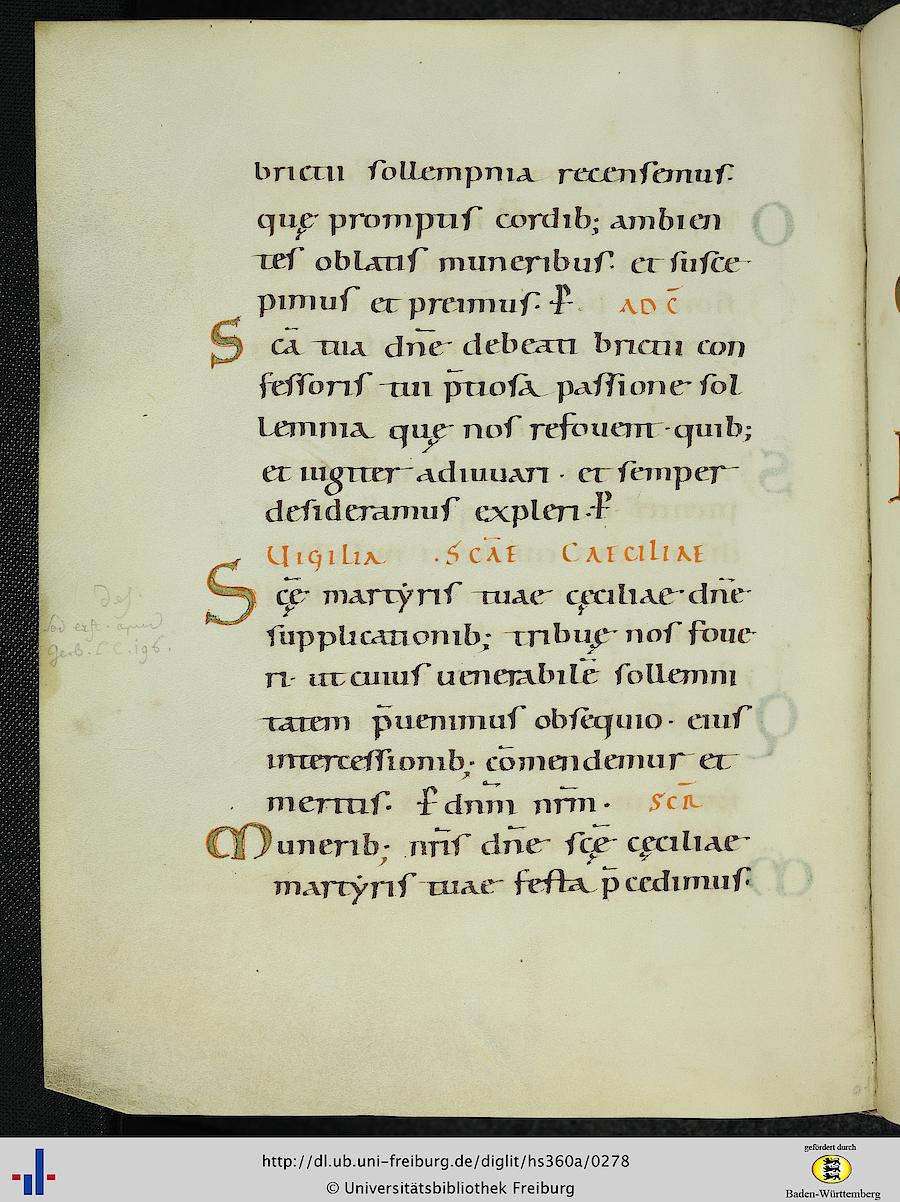 brictii sollempnia recensemus.
quę promptis cordib; ambien
tes oblatis muneribus. et susce
pimus et preimus. P̄. AD C̄
Scā tua dn̄e debeati brictii con
fessoris tui p̄tiosa passione sol
lemnia quę nos refouent. quib;
et iugiter adiuuari. et semper
desideramus expleri. P̄
UIGILIA. SCĀE CAECILIAE
Scę̄ martẏris tuae cęciliae dn̄e
supplicationib; tribuę nos foue
ri. ut cuius uenerabilē sollemni
tatem p̄uenimus obsequio. eius
intercessionib; cōmendemur et
meritis. P̄ dnm̄ nrm̄. SCR̄
Munerib; nr̄is dn̄e scę̄ cęciliae
martẏris tuae festa p̄cedimus.
def.
Gerb. l. c. 196.
http://dl.ub.uni-freiburg.de/diglit/hs360a/0278
© Universitätsbibliothek Freiburg
gefördert durch
Baden-Württemberg